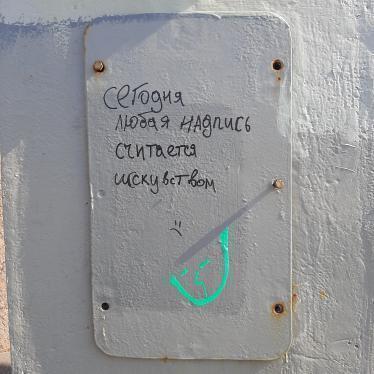 сегодня
любая надпись
считается
искувством
:(